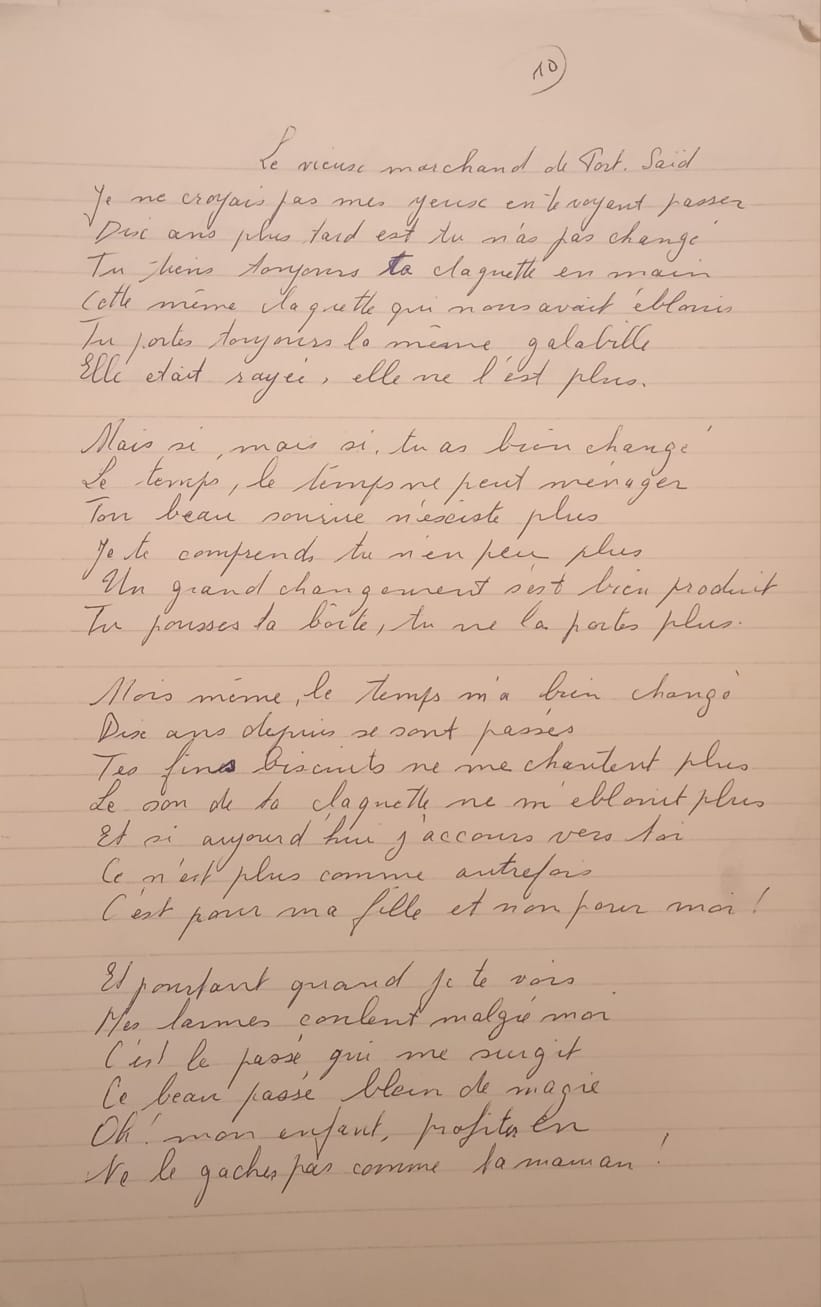 10
Le vieux marchand de Port. Saïd
Je ne croyais pas mes yeux en te voyant passer
Dix ans plus tard est tu n'as pas changé
Tu tiens toujours ta claquette en main
Cette même claquette qui nous avait éblouis
Tu portes toujours la même galabille
Elle était rayée, elle ne l'est plus.
Mais si, mais si, tu as bien changé
Le temps, le temps ne peut ménager
Ton beau sourire n'existe plus
Je te comprends tu n'en peu plus
Un grand changement s'est bien produit
Tu pousses ta boîte, tu ne la portes plus.
Mois même, le temps m'a bien changé
Dix ans depuis se sont passés
Tes fines biscuits ne me chantent plus
Le son de ta claquette ne m'éblouit plus
Et si aujourd'hui j'accours vers toi
Ce n'est plus comme autrefois
C'est pour ma fille et non pour moi !
Et pourtant quand je te vois
Mes larmes coulent malgré moi
C'est le passé qui me surgit
Ce beau passé blein de magie
Oh ! mon enfant, profites en
Ne le gaches pas comme ta maman !